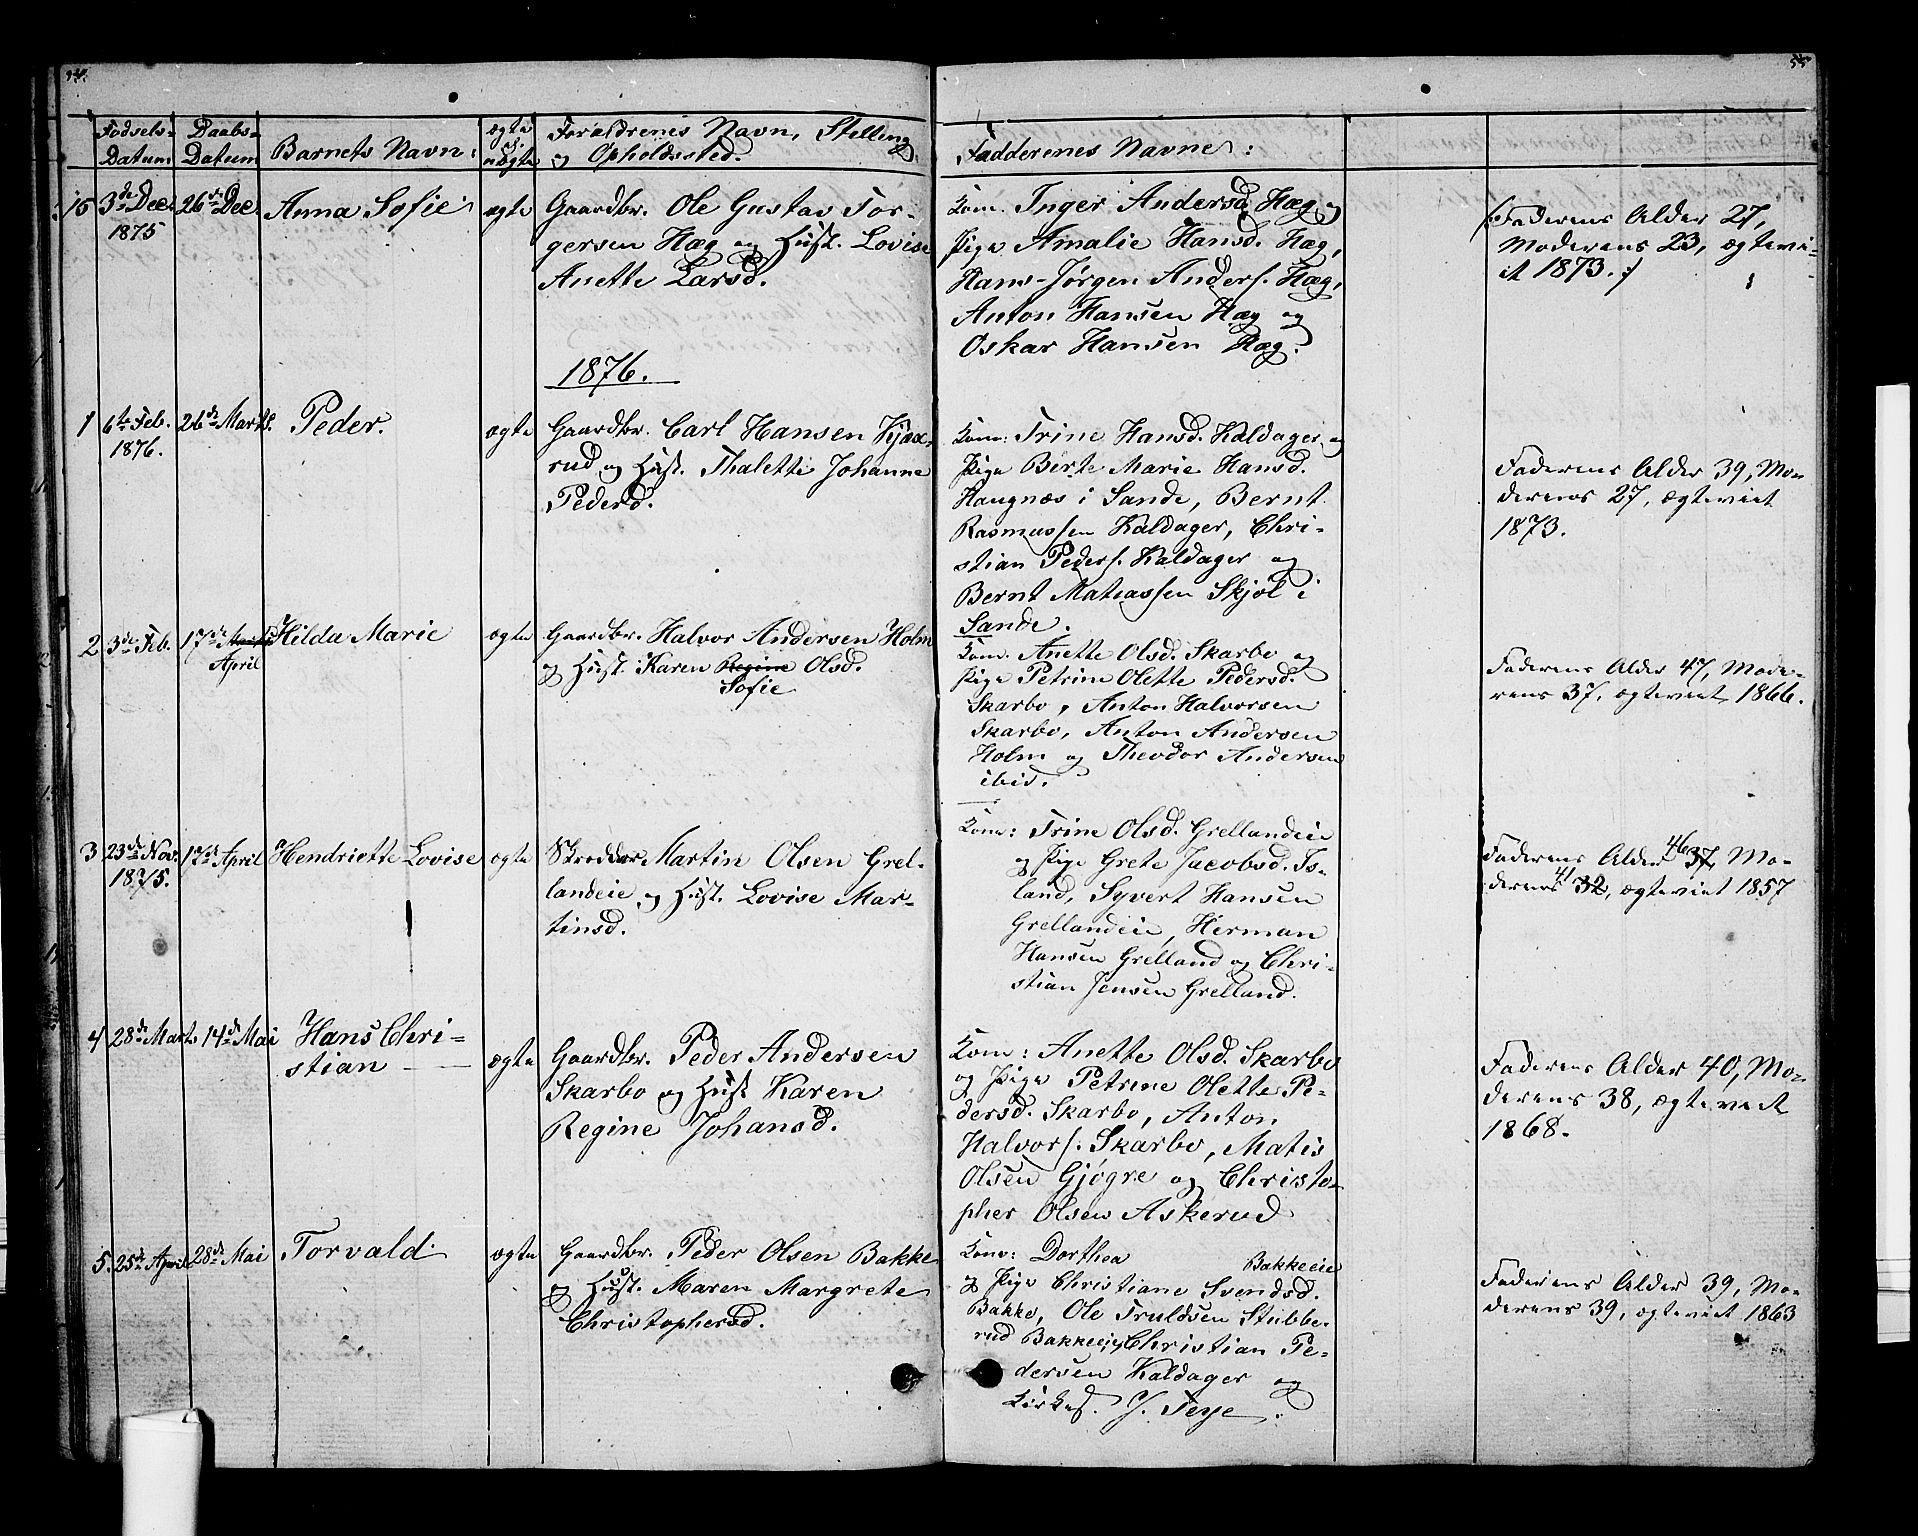 54.
55
Fødsels-
Datum
Daabs-
Datum
Barnets Navn:
ægte
el.
uægte
Forældrenes Navn, Stilling
og Opholdssted.
Fadderenes Navne:
15
3de Dec.
1875
26de Dec.
Anna Sofie
ægte
Gaardbr. Ole Gustav Tor-
gersen Hæg og Hust. Lovise
Anette Larsd.
Kone. Inger Andersd. Hæg,
Pige Amalie Hansd. Hæg,
Hans Jørgen Anders. Hæg,
Anton Hansen Hæg og
Oskar Hansen Hæg.
/: Faderens Alder 27,
Moderens 23, ægtevi-
et 1873. :/
1876.
1
6te Feb.
1876.
26de Marts.
Peder.
ægte
Gaardbr. Carl Hansen Kjær-
rud og Hust. Thalette Johanne
Pedersd.
Kone: Trine Hansd. Kaldager og
Pige Berte Marie Hansd.
Haugnæs i Sande, Bernt
Rasmussen Kaldager, Chri-
stian Peders. Kaldager og
Bernt Mathiassen Skjøl i
Sande.
Faderens Alder 39, Mo-
derens 27, ægteviet
1873.
2
3de Feb.
17de
April
Hilda Marie
ægte
Gaardbr. Halvor Andersen Holm
og Hust. Karen Regine Olsd.
Sofie
Kone. Anette Olsd. Skarbo og
Pige Petrine Olette Pedersd.
Skarbo, Anton Halvorsen
Skarbo, Anton Andersen
Holm og Theodor Andersen
ibid.
Faderens Alder 47, Mode-
rens 37, ægteviet 1866.
3
23de Nov.
1875.
17de April
Hendriette Lovise
ægte
Skrædder Martin Olsen Grel-
landeie og Hust. Lovise Mar-
tinsd.
Kone: Trine Olsd. Grellandeie
og Pige Grete Jacobsd. Is-
land, Syvert Hansen
Grellandeie, Herman
Hansen Grelland og Chri-
stian Jensen Grelland.
Faderens Alder 46 37, Mo-
derens 41 32, ægteviet 1857
4
28de Marts
14de Mai
Hans Chri-
stian
ægte
Gaardbr. Peder Andersen
Skarbo og Hust Karen
Regine Johansd.
Kone: Anette Olsd. Skarbo
og Pige Petrine Olette Pe-
dersd. Skarbo, Anton
Halvors. Skarbo, Matis
Olsen Gjøgre og Christo-
pher Olsen Askerud
Faderens Alder 40, Mo-
derens 38, ægteviet
1868.
5.
25de April
28de Mai
Torvald
ægte
Gaardbr. Peder Olsen Bakke
og Hust. Maren Margrete
Christophersd.
Kone: Dorthea Bakkeeie
og Pige Christiane Svendsd.
Bakke, Ole Truldsen Stubbe-
rud Bakkeeie, Christian Pe-
dersen Kaldager og
Kirkes. J. Teye.
Faderens Alder 39, Mo-
derens 39, ægteviet 1863